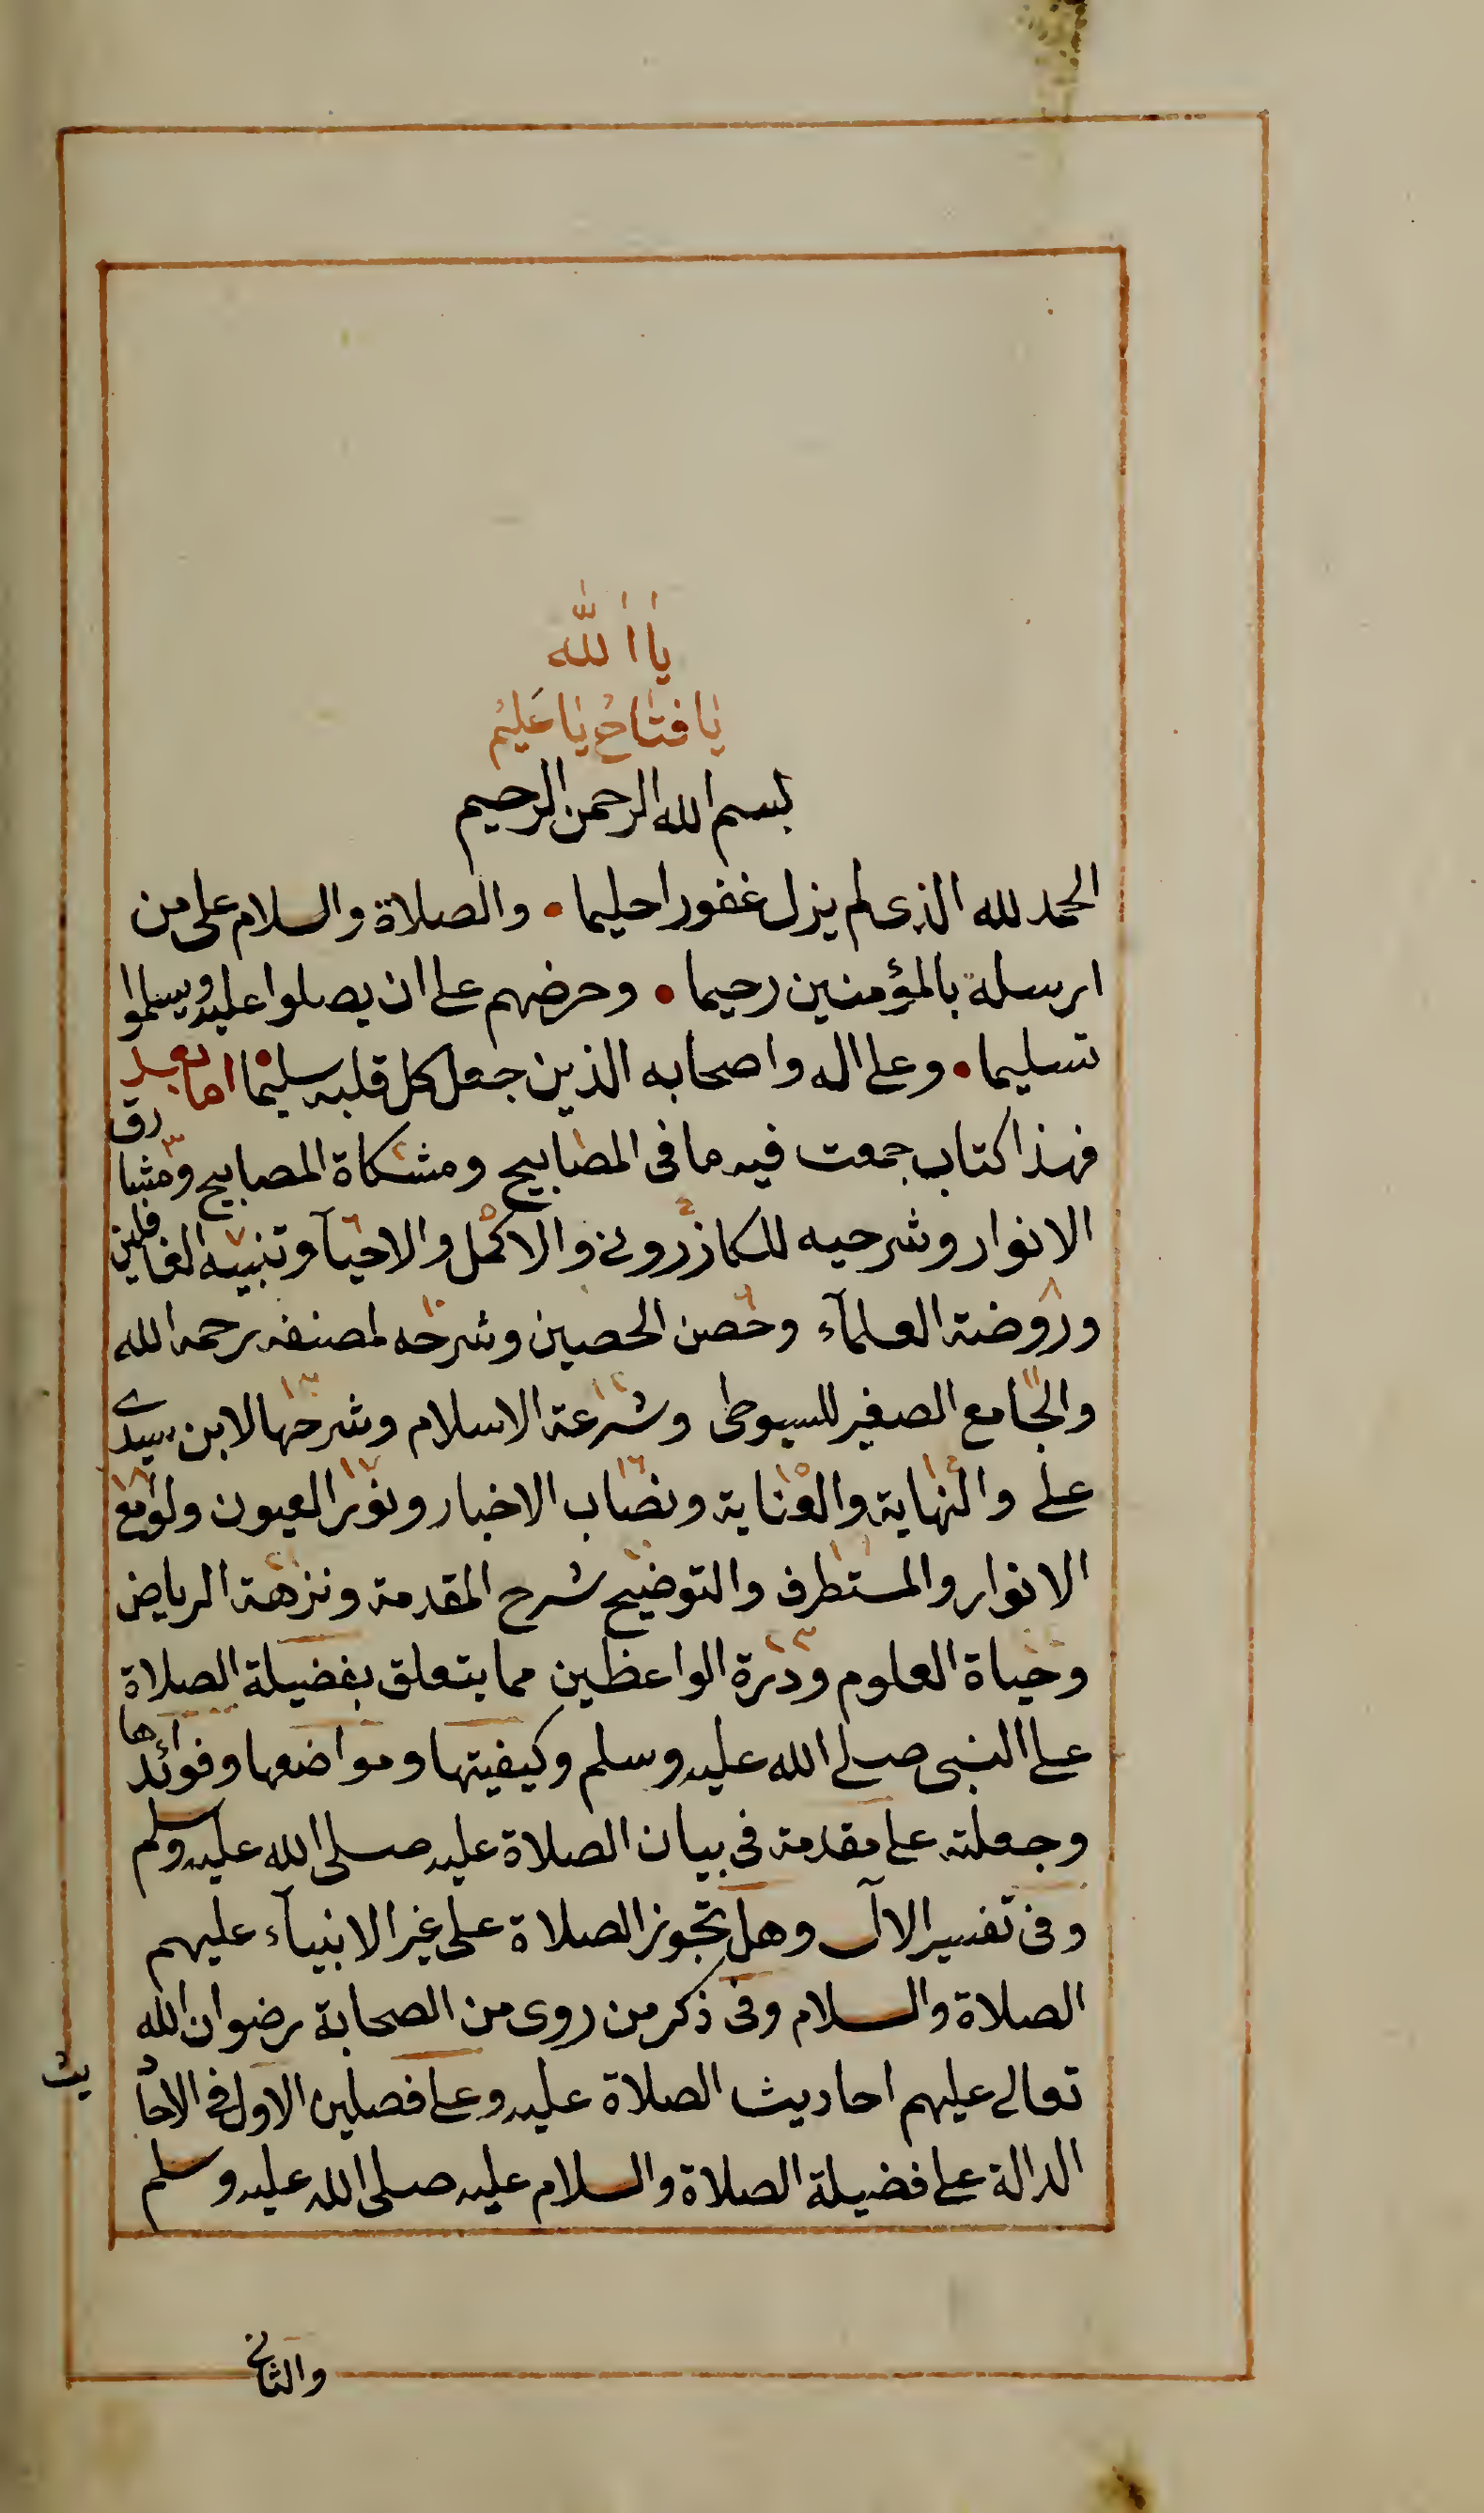 يا الله
يا فتاح يا عليم
بسم الله الرحمن الرحيم
الحمد لله الذى لم يزل غفورا حليما • والصلاة والسلام على من
ارسله بالمؤمنين رحيما • وحرضهم على ان يصلوا عليه ويسلموا
تسليما • وعلى اله واصحابه الذين جعل كل قلبه سليما اما بعد
فهذا كتاب جمعت فيه ما فى المصابيح ومشكاة المصابيح ومشارق
الانوار وشرحيه للكازرونى والاكمل والاحيآ وتنبيه الغافلين
وروضة العلمآء وحصن الحصين وشرحه لمصنفه رحمه الله
والجامع الصغير للسيوطى وشرعة الاسلام وشرحها لابن سيدى
على والنهاية والعناية ونصاب الاخبار ونور العيون ولوامع
الانوار والمستطرف والتوضيح شرح المقدمة ونزهة الرياض
وحياة العلوم ودرة الواعظين مما يتعلق بفضيلة الصلاة
على النبى صلى الله عليه وسلم وكيفيتها ومواضعها وفوائدها
وجعلته على مقدمة فى بيان الصلاة عليه صلى الله عليه وسلم
وفى تفسير الآل وهل تجوز الصلاة على غير الانبيآء عليهم
الصلاة والسلام وفى ذكر من روى من الصحابة رضوان الله
تعالى عليهم احاديث الصلاة عليه وعلى فصلين الاول فى الاحاديث
الدالة على فضيلة الصلاة والسلام عليه صلى الله عليه وسلم
والثانى